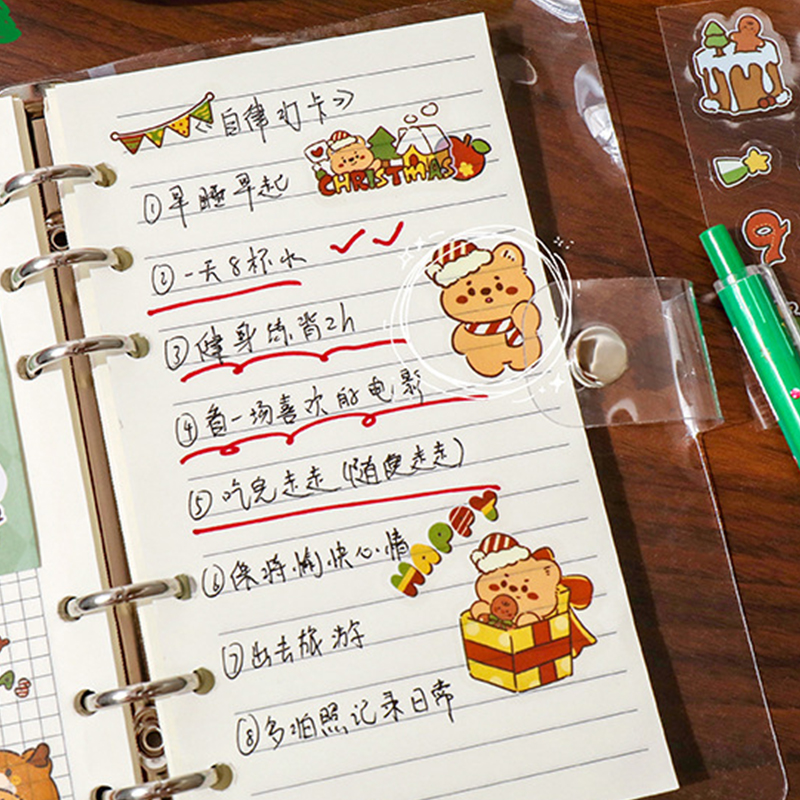 《自律打卡》
CHRISTMAS
①早睡早起
②一天8杯水
③健身练背2h
④看一场喜欢的电影
⑤吃完走走(随便走走)
HAPPY
⑥保持愉快心情
⑦出去旅游
⑧多拍照记录日常
9